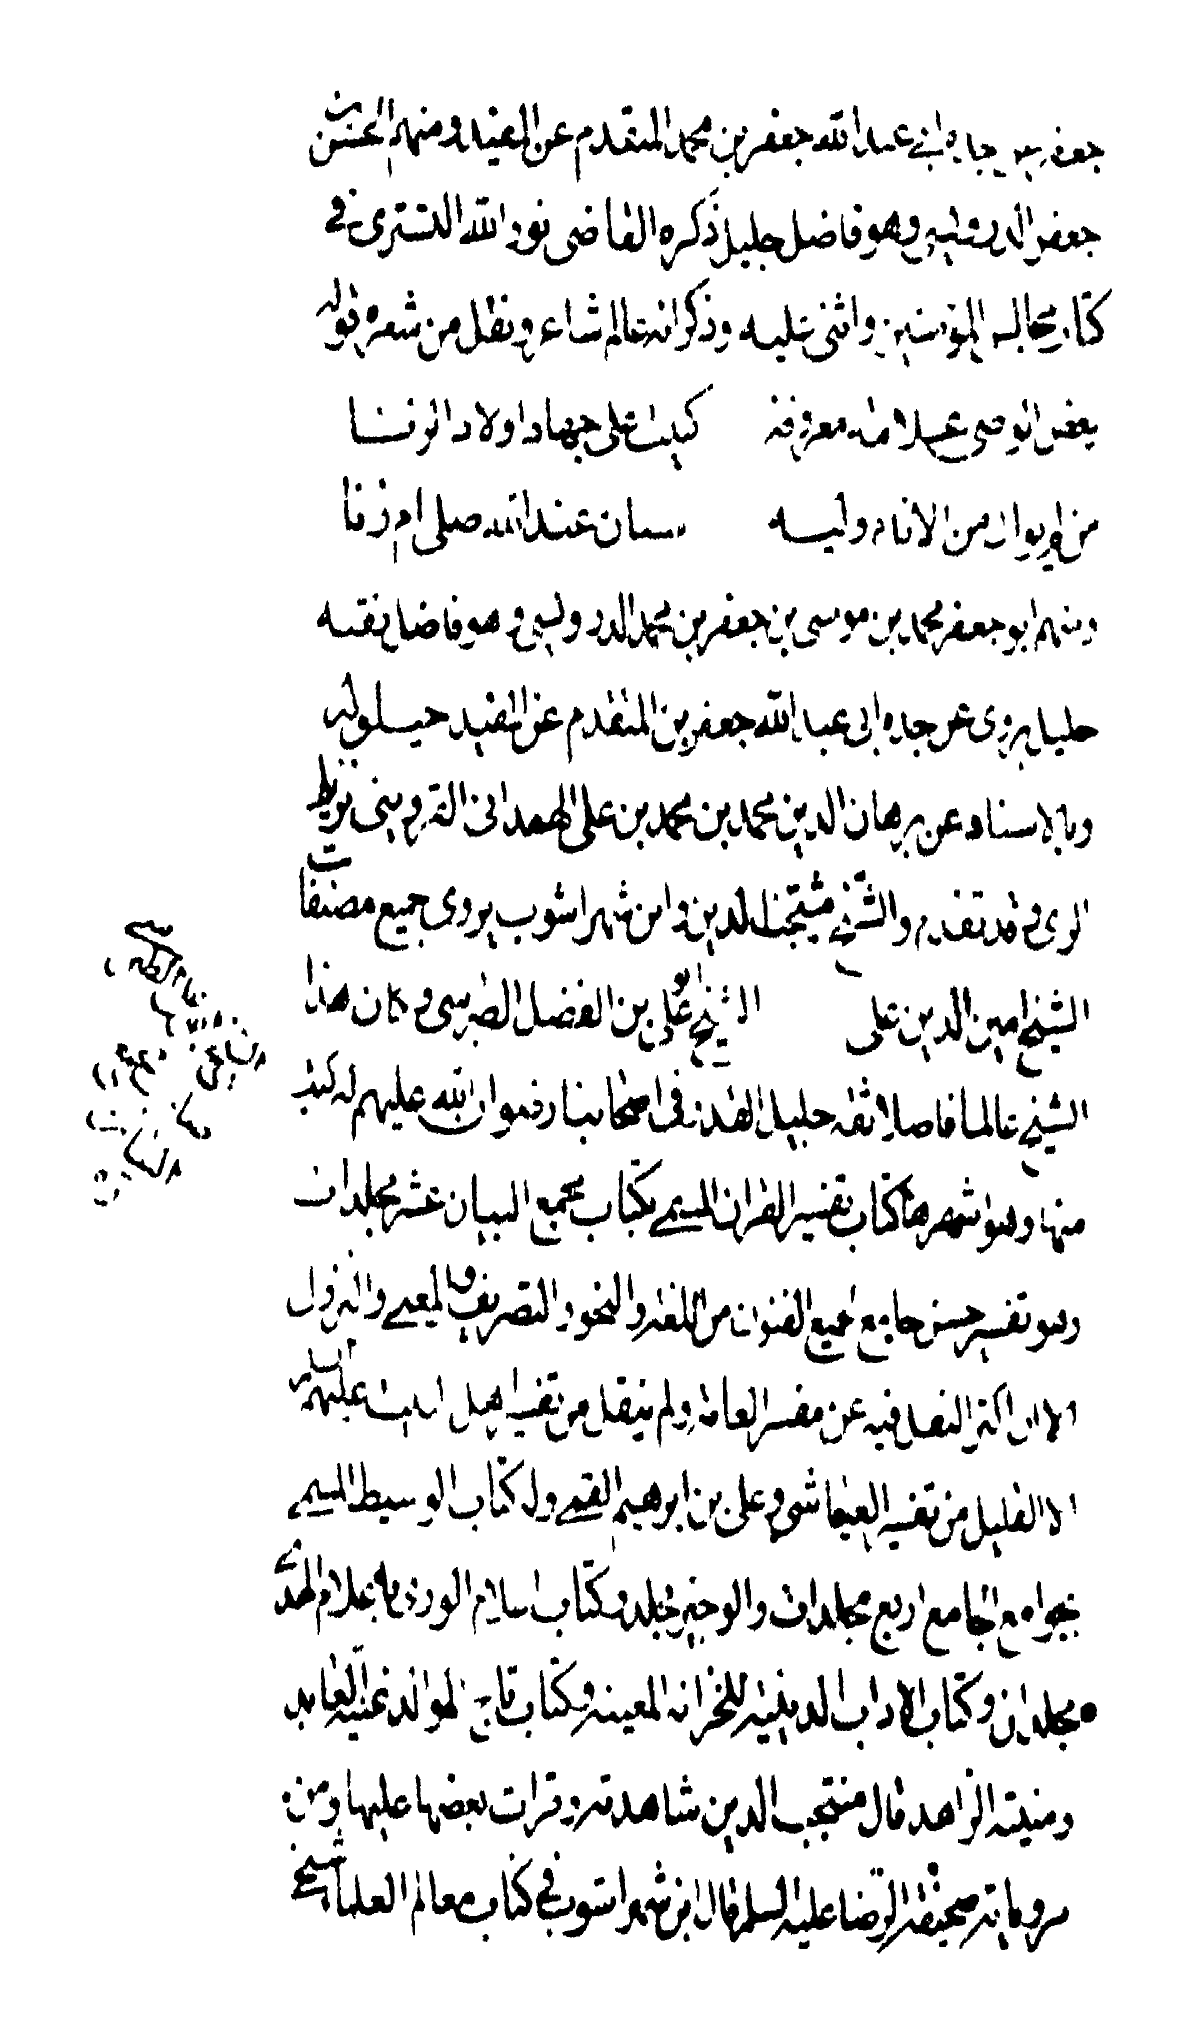 جعفر عن جده ابي عبد الله جعفر بن محمد المتقدم عن المفيد ومنهم الحسن بن
جعفر الدوريستي وهو فاضل جليل ذكره القاضي نور الله التستري في
كتاب مجالس المؤمنين واثنى عليه وذكر انه عالم شاعر ونقل من شعره قوله
بغض الوصي علامة معروفة كتبت على جباه اولاد الزنا
من لم يوال من الانام وليه سيان عند الله صلى ام زنا
ومنهم ابو جعفر محمد بن موسى بن جعفر بن محمد الدوريستي وهو فاضل فقيه
جليل يروي عن جده ابي عبد الله جعفر بن المتقدم عن المفيد حيلولة
وبالاسناد عن برهان الدين محمد بن محمد بن علي الهمداني القزويني نزيل
الري وقد تقدم والشيخ منتجب الدين وابن شهراشوب يروي جميع مصنفات
الشيخ امين الدين علي الشيخ ابو علي بن الفضل الطبرسي وكان هذا
الشيخ عالما فاضلا ثقة جليل القدر في اصحابنا رضوان الله عليهم له كتب
منها وهو اشهرها كتاب تفسير القران المسمى بكتاب مجمع البيان عشر مجلدات
وهو تفسير حسن جامع لجميع الفنون من اللغة والنحو والتصريف والمعنى والنزول
الا ان اكثر النقل فيه عن مفسر العامة ولم ينقل من تفسير اهل البيت عليهم السلام
الا القليل من تفسير العياشي وعلي بن ابرهيم القمي وله كتاب الوسيط المسمى
بجوامع الجامع اربع مجلدات والوجيز مجلد وكتاب اعلام الورى باعلام الهدى
مجلدان وكتاب الاداب الدينية للخزانة المعينية وكتاب تاج المواليد غنية العابد
ومنية الزاهد قال منتجب الدين شاهدته وقرات بعضها عليها ومن
مروياته صحيفة الرضا عليه السلم قال ابن شهراشوب في كتاب معالم العلماء شيخي